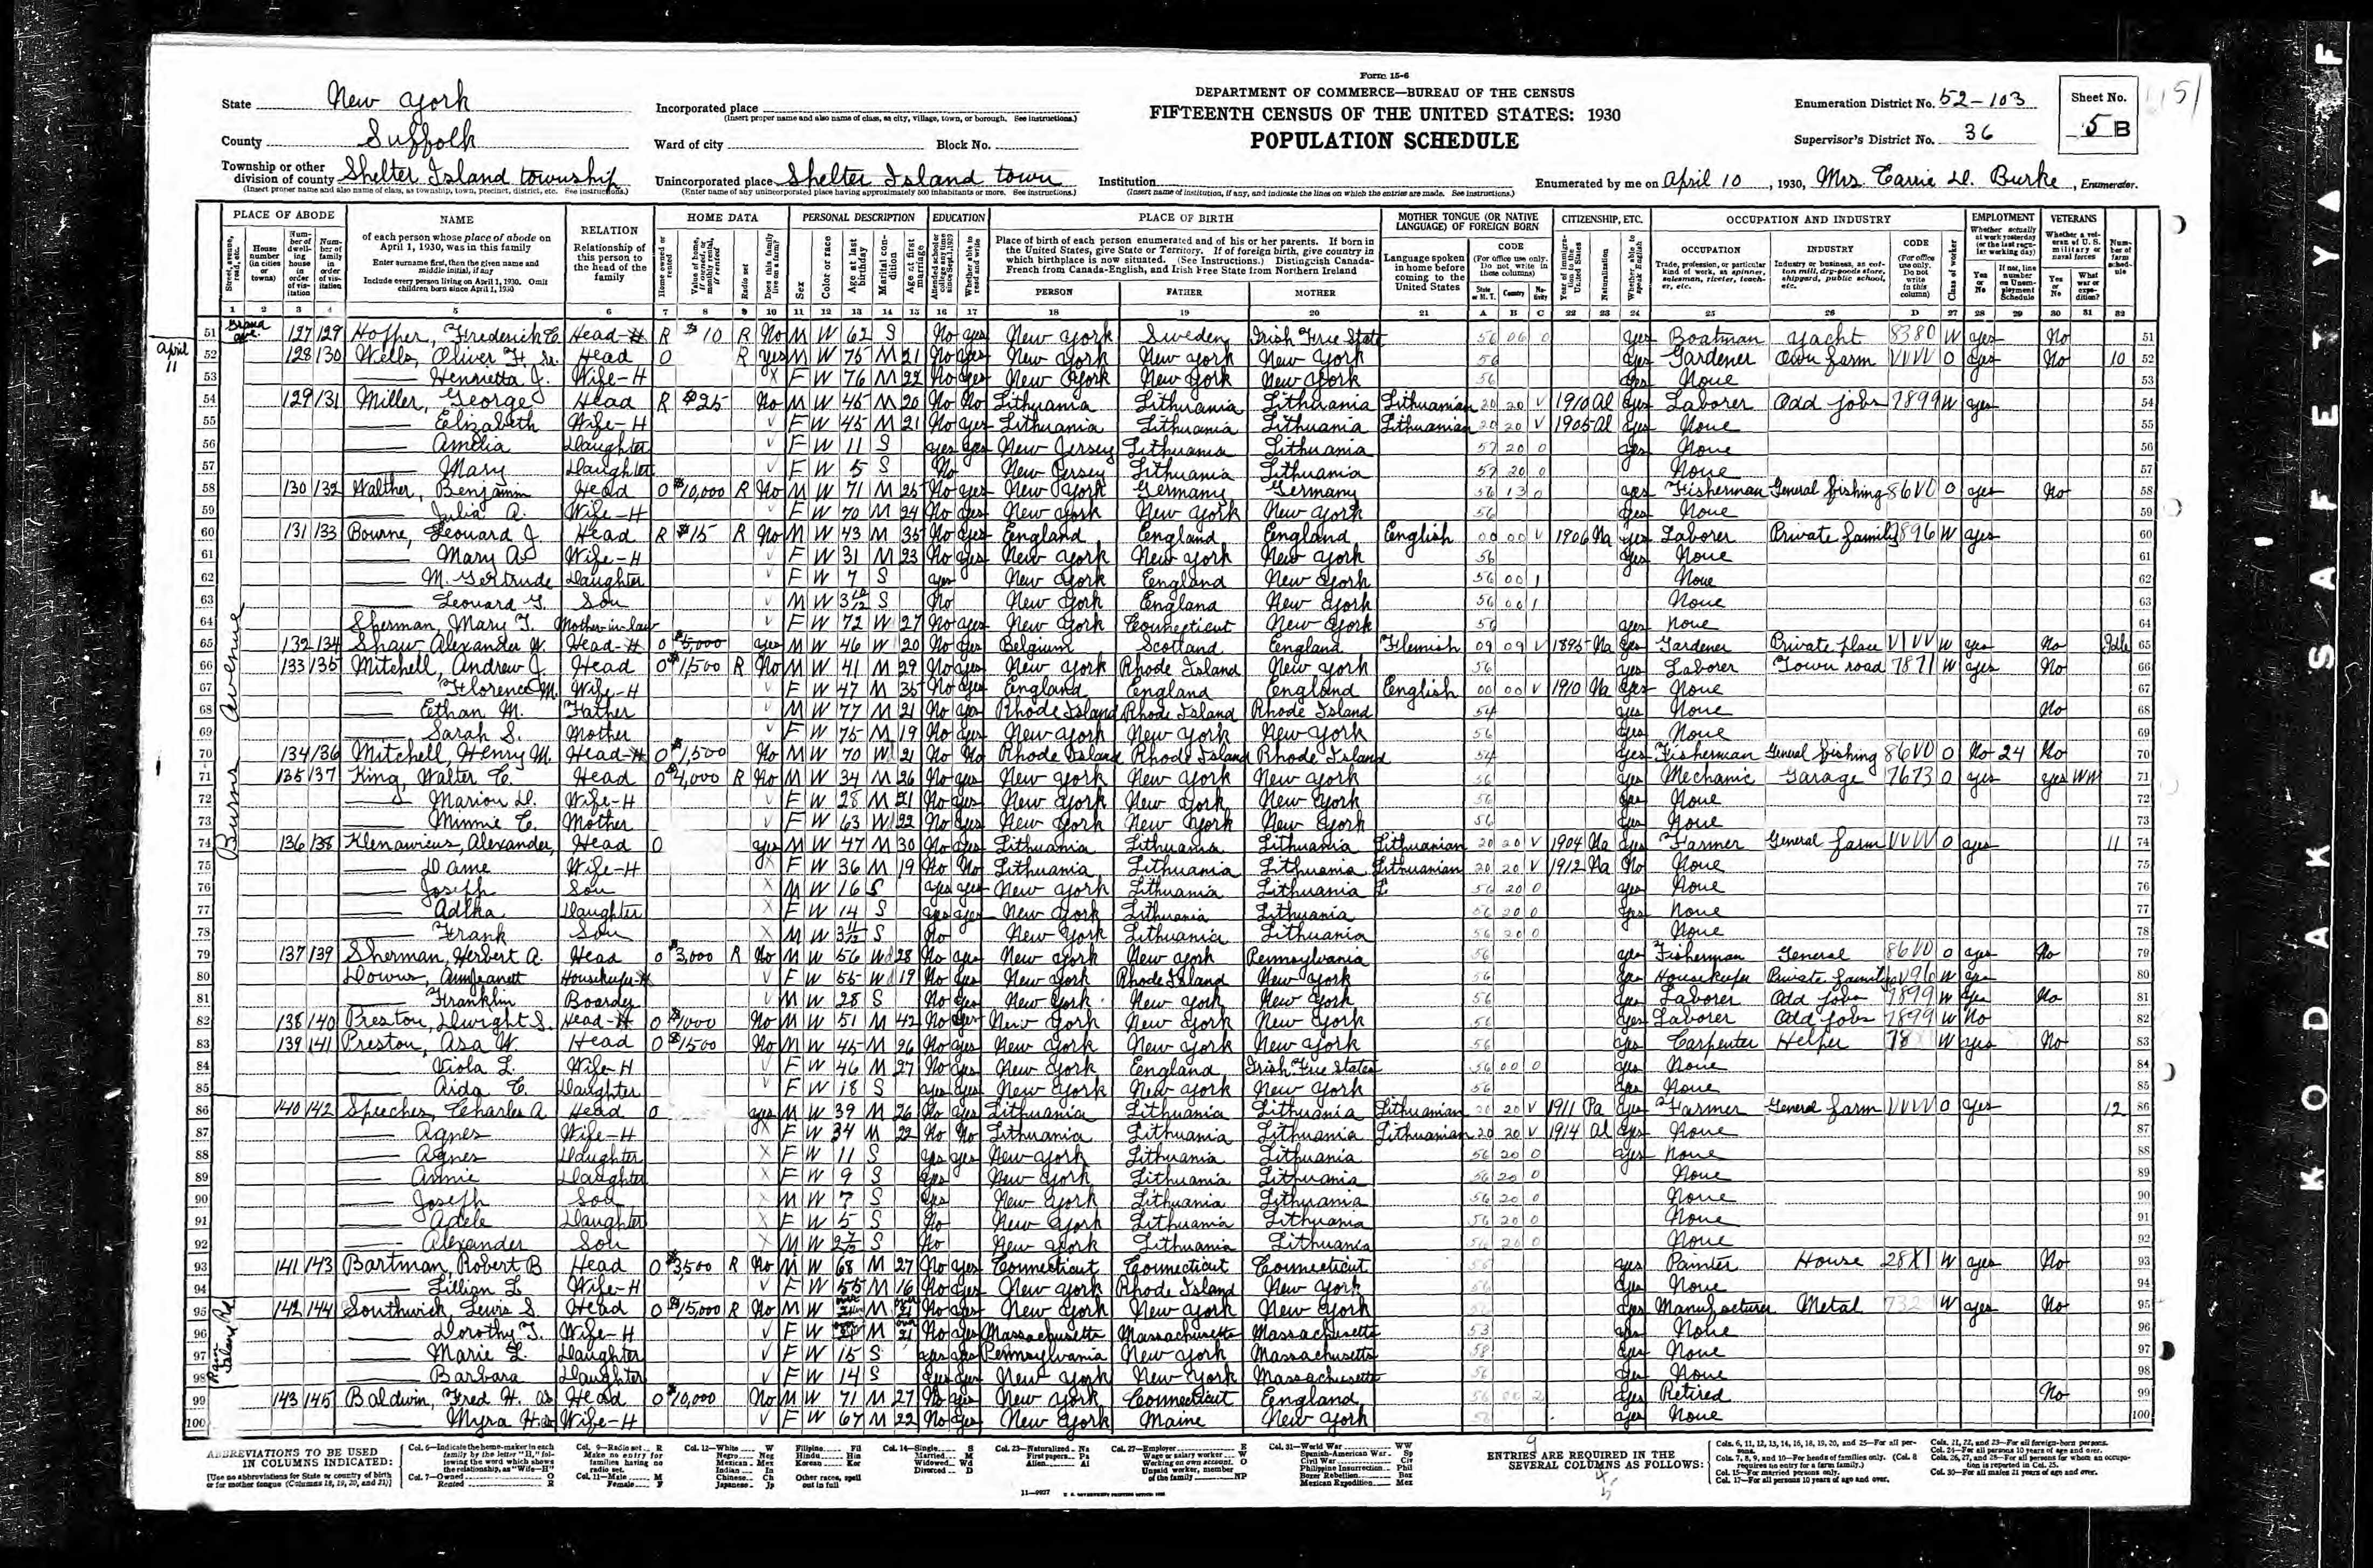 Form 15-6
State New York
County Suffolk
Township or other division of county Shelter Island township
(Insert proper name and also name of class, as township, town, precinct, district, etc. See instructions.)
Incorporated place
(Insert proper name and also name of class, as city, village, town, or borough. See instructions.)
Ward of city Block No.
Unincorporated place Shelter Island town
(Enter name of any unincorporated place having approximately 500 inhabitants or more. See instructions.)
DEPARTMENT OF COMMERCE—BUREAU OF THE CENSUS
FIFTEENTH CENSUS OF THE UNITED STATES: 1930
POPULATION SCHEDULE
Institution
(Insert name of institution, if any, and indicate the lines on which the entries are made. See instructions.)
Enumeration District No. 52-103
Supervisor's District No. 36
Sheet No. 5 B
Enumerated by me on April 10, 1930, Mrs. Carrie D. Burke, Enumerator.
PLACE OF ABODE NAME RELATION HOME DATA PERSONAL DESCRIPTION EDUCATION PLACE OF BIRTH MOTHER TONGUE (OR NATIVE LANGUAGE) OF FOREIGN BORN CITIZENSHIP, ETC. OCCUPATION AND INDUSTRY EMPLOYMENT VETERANS
PERSON FATHER MOTHER
1 2 3 4 5 6 7 8 9 10 11 12 13 14 15 16 17 18 19 20 21 A B C 22 23 24 25 26 D 27 28 29 30 31 32
April 11
Burns Avenue
51 127 129 Hopper, Frederick C. Head-H R $10 R No M W 62 S No yes New York Sweden Irish Free State 56 06 0 yes Boatman Yacht 8380 W yes No 51
52 128 130 Wells, Oliver H. Sr. Head O R yes M W 75 M 21 No yes New York New York New York 56 yes Gardener Own farm VVVV O yes No 10 52
53 Henrietta J. Wife-H X F W 76 M 22 No yes New York New York New York 56 yes None 53
54 129 131 Miller, George Head R $25 No M W 45 M 20 No No Lithuania Lithuania Lithuania Lithuanian 20 20 V 1910 Al yes Laborer Odd jobs 7899 W yes 54
55 Elizabeth Wife-H V F W 45 M 21 No yes Lithuania Lithuania Lithuania Lithuanian 20 20 V 1905 Al yes None 55
56 Amelia Daughter V F W 11 S yes yes New Jersey Lithuania Lithuania 57 20 0 yes None 56
57 Mary Daughter V F W 5 S No New Jersey Lithuania Lithuania 57 20 0 None 57
58 130 132 Walther, Benjamin Head O $10,000 R No M W 71 M 25 No yes New York Germany Germany 56 13 0 yes Fisherman General fishing 86VV O yes No 58
59 Julia A. Wife-H V F W 70 M 24 No yes New York New York New York 56 yes None 59
60 131 133 Bourne, Leonard J. Head R $15 R No M W 43 M 35 No yes England England England English 00 00 V 1906 Na yes Laborer Private family 7896 W yes 60
61 Mary A. Wife-H V F W 31 M 23 No yes New York New York New York 56 yes None 61
62 M. Gertrude Daughter V F W 7 S yes New York England New York 56 00 1 None 62
63 Leonard G. Son V M W 3 10/12 S No New York England New York 56 00 1 None 63
64 Sherman, Mary T. Mother-in-law V F W 72 W 27 No yes New York Connecticut New York 56 yes None 64
65 132 134 Shaw Alexander W. Head-H O $5,000 yes M W 46 W 20 No yes Belgium Scotland England Flemish 09 09 V 1895 Na yes Gardener Private place VVVV W yes No Idle 65
66 133 135 Mitchell, Andrew J. Head O $1,500 R No M W 41 M 29 No yes New York Rhode Island New York 56 yes Laborer Town road 7871 W yes No 66
67 Florence M. Wife-H V F W 47 M 35 No yes England England England English 00 00 V 1910 Na yes None 67
68 Ethan M. Father V M W 77 M 21 No yes Rhode Island Rhode Island Rhode Island 54 yes None No 68
69 Sarah S. Mother V F W 75 M 19 No yes New York New York New York 56 yes None 69
70 134 136 Mitchell, Henry M. Head-H O $1,500 No M W 70 Wd 21 No No Rhode Island Rhode Island Rhode Island 54 yes Fisherman General fishing 86VV O No 24 No 70
71 135 137 King, Walter C. Head O $4,000 R No M W 34 M 26 No yes New York New York New York 56 yes Mechanic Garage 7673 O yes yes WW 71
72 Marion D. Wife-H V F W 28 M 21 No yes New York New York New York 56 yes None 72
73 Minnie C. Mother V F W 63 Wd 22 No yes New York New York New York 56 yes None 73
74 136 138 Klenawicus, Alexander, Head O yes M W 47 M 30 No yes Lithuania Lithuania Lithuania Lithuanian 20 20 V 1904 Na yes Farmer General farm VVVV O yes 11 74
75 Dame Wife-H X F W 36 M 19 No No Lithuania Lithuania Lithuania Lithuanian 20 20 V 1912 Na No None 75
76 Joseph Son X M W 16 S yes yes New York Lithuania Lithuania 56 20 0 yes None 76
77 Adlka Daughter X F W 14 S yes yes New York Lithuania Lithuania 56 20 0 yes None 77
78 Frank Son X M W 3 11/12 S No New York Lithuania Lithuania 56 20 0 None 78
79 137 139 Sherman, Herbert A. Head O $3,000 R No M W 56 Wd 28 No yes New York New York Pennsylvania 56 yes Fisherman General 86VV O yes No 79
80 Downs, Annjeanett Housekeeper-H V F W 55 Wd 19 No yes New York Rhode Island New York 56 yes Housekeeper Private family W yes 80
81 Franklin Boarder V M W 28 S No yes New York New York New York 56 yes Laborer Odd jobs 7899 W yes No 81
82 138 140 Preston, Dwight S. Head-H O $1000 No M W 51 M 42 No yes New York New York New York 56 yes Laborer Odd jobs 7899 W No 82
83 139 141 Preston, Asa W. Head O $1500 No M W 45 M 26 No yes New York New York New York 56 yes Carpenter Helper W yes No 83
84 Viola L. Wife-H V F W 46 M 27 No yes New York England Irish Free State 56 00 0 yes None 84
85 Aida C. Daughter V F W 18 S yes yes New York New York New York 56 yes None 85
86 140 142 Speeches, Charles A. Head O yes M W 39 M 26 No yes Lithuania Lithuania Lithuania Lithuanian 20 20 V 1911 Pa yes Farmer General farm VVVV O yes 12 86
87 Agnes Wife-H X F W 34 M 22 No No Lithuania Lithuania Lithuania Lithuanian 20 20 V 1914 Al yes None 87
88 Agnes Daughter X F W 11 S yes yes New York Lithuania Lithuania 56 20 0 yes None 88
89 Annie Daughter X F W 9 S yes New York Lithuania Lithuania 56 20 0 None 89
90 Joseph Son X M W 7 S yes New York Lithuania Lithuania 56 20 0 None 90
91 Adele Daughter X F W 5 S No New York Lithuania Lithuania 56 20 0 None 91
92 Alexander Son X M W S No New York Lithuania Lithuania 56 20 0 None 92
93 141 143 Bartman, Robert B Head O $3,500 R No M W 68 M 27 No yes Connecticut Connecticut Connecticut yes Painter House 28X1 W yes No 93
94 Lillian L. Wife-H V F W 55 M 16 No yes New York Rhode Island New York 56 yes None 94
95 142 144 Southwick, Lewis S. Head O $15,000 R No M W over 21 M over 21 No yes New York New York New York yes Manufacturer Metal W yes No 95
96 Dorothy T. Wife-H V F W over 21 M over 21 No yes Massachusetts Massachusetts Massachusetts 53 yes None 96
97 Marie L. Daughter V F W 15 S yes yes Pennsylvania New York Massachusetts 58 yes None 97
98 Barbara Daughter V F W 14 S yes yes New York New York Massachusetts 56 yes None 98
99 143 145 Baldwin, Fred H. Head O $10,000 No M W 71 M 27 No yes New York Connecticut England 56 00 2 yes Retired No 99
100 Myra H. Wife-H V F W 67 M 22 No yes New York Maine New York 56 yes None 100
ABBREVIATIONS TO BE USED IN COLUMNS INDICATED:
[Use no abbreviations for State or country of birth or for mother tongue (Columns 18, 19, 20, and 21)]
ENTRIES ARE REQUIRED IN THE SEVERAL COLUMNS AS FOLLOWS:
KODAK SAFETY F